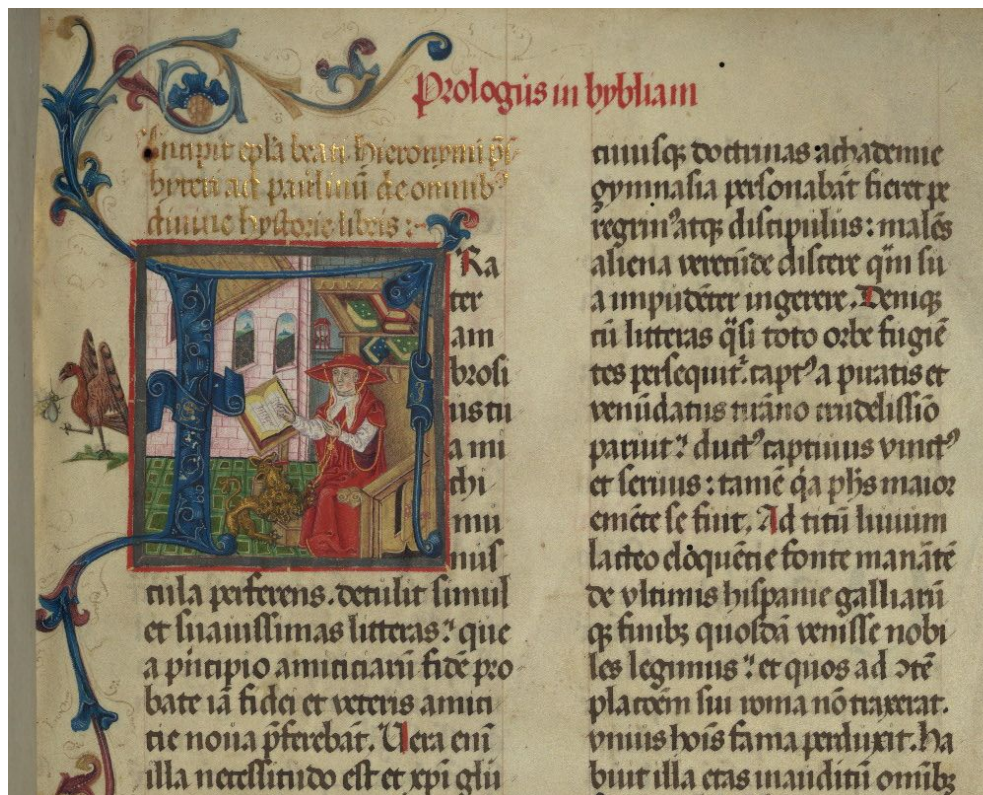 Prologus in bybliam
Incipit epl'a beati Hieronymi p̄s-
byteri ad paulinū de omnib⁹
diuine hystorie libris :~
FRa
ter
am
brosi
us tu
a mi
chi
mu
nus
cula perferens. detulit simul
et suauissimas litteras : que
a p̄ncipio amiciciarū fidē pro
bate iā fidei et veteris amici
tie noua p̄ferebāt. Uera enī
illa necessitudo est et xp̄i glu
cuiusq; doctrinas achademie
gymnasia personabāt fieret pe
regrin⁹ atq; discipulus : malēs
aliena verecūde discere q̄m su
a impudēter ingerere. Deniq;
cū litteras q̄si toto orbe fugiē
tes persequit᷑. capt⁹ a piratis et
venūdatus tirāno crudelissīo
paruit : duct⁹ captiuus vinct⁹
et seruus : tamē q̄a ph̄s maior
emēte se fuit. Ad titū liuium
lacteo eloquētie fonte manātē
de vltimis hispanie galliarū
q; finib; quosdā venisse nobi
les legimus : et quos ad ꝯtē
platōem sui roma nō traxerat.
vnius hoīs fama perduxit. Ha
buit illa etas inauditū omīb;